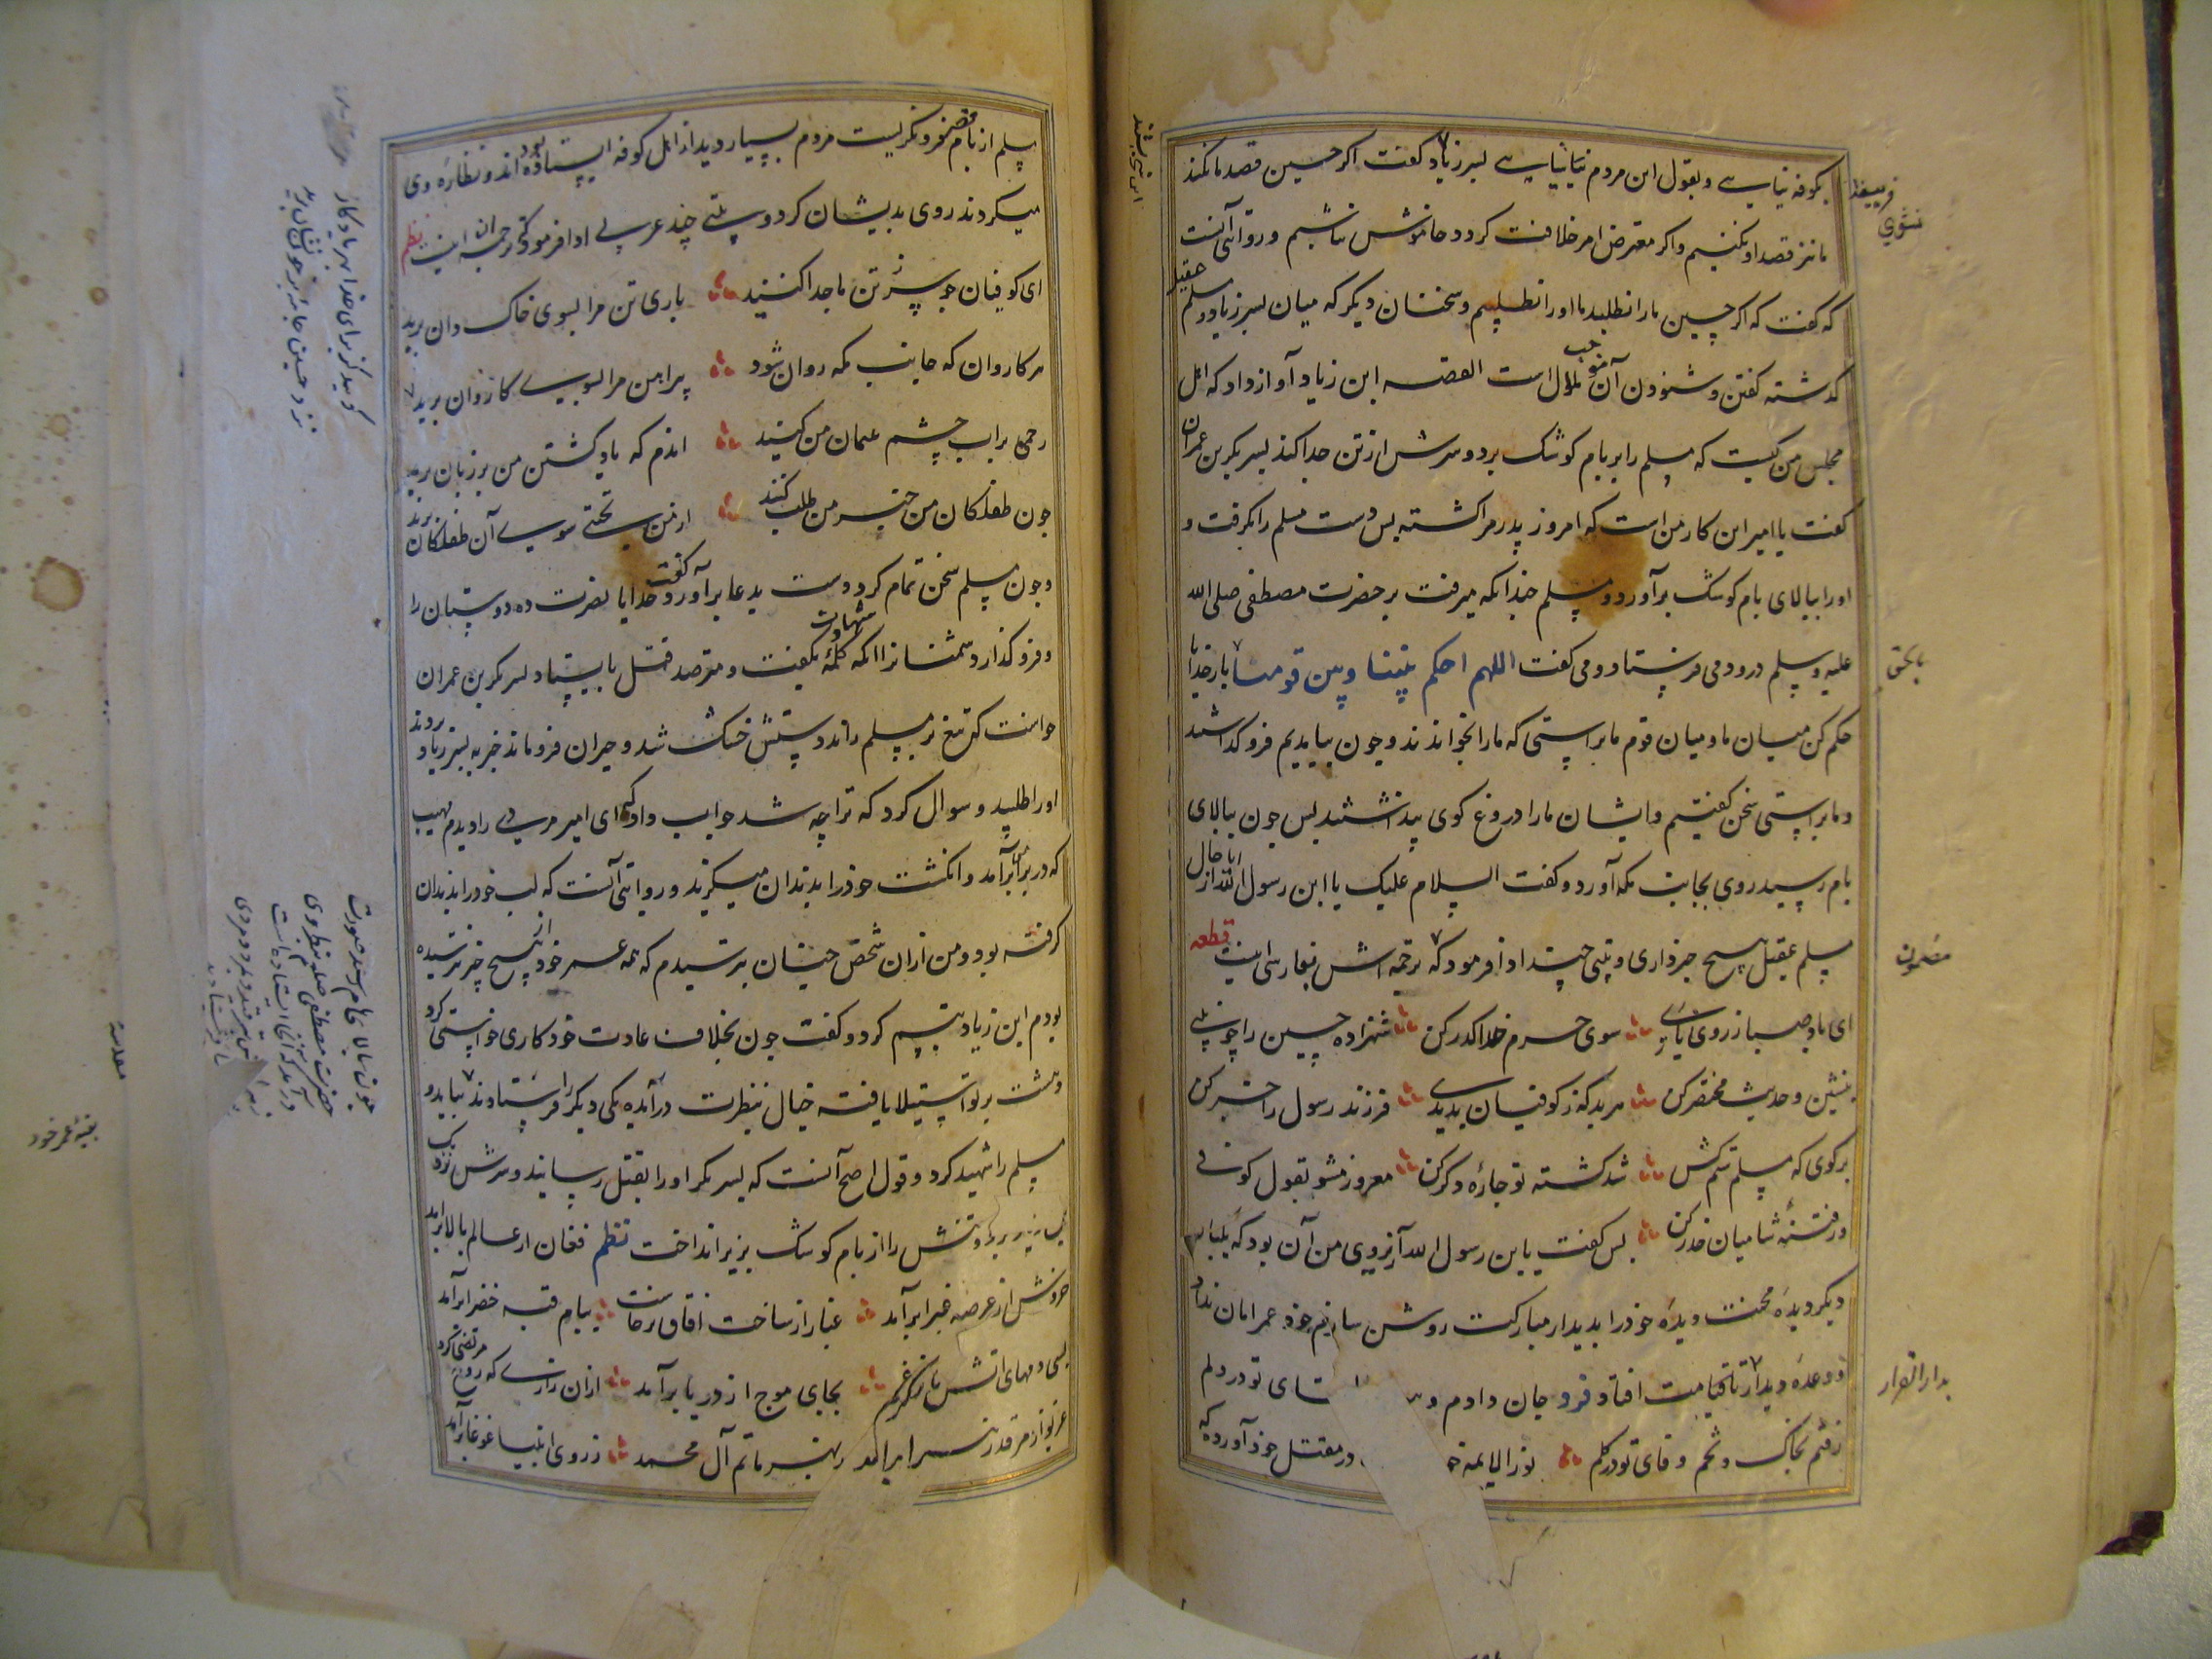 بکوفه نیایی و بقول این مردم نیایی پسر زیاد گفت اگر حسین قصد ما نکند
ما نیز قصد او نکنیم و اگر متعرض امر خلافت گردد خاموش نباشیم و روایتی آنست
که گفت که اگر حسین ما را نطلبد ما او را نطلبیم و سخنان دیگر که میان پسر زیاد و مسلم عقیل
گذشته گفتن و شنودن آن موجب ملال است القصه ابن زیاد آواز داد که اهل
مجلس من کیست که مسلم را بر بام کوشک برد و سرش از تن جدا کند پسر بکر بن عمران
گفت یا امیر این کار من است که امروز پدر مرا کشته پس دست مسلم را بگرفت و
او را ببالای بام کوشک برآورد و مسلم چندانکه میرفت بر حضرت مصطفی صلی الله
علیه و سلم درود می فرستاد و می گفت اللهم احکم بیننا و بین قومنا بار خدایا
حکم کن میان ما و میان قوم ما براستی که ما را بخواندند و چون بیامدیم فرو گذاشتند
و ما براستی سخن گفتیم و ایشان ما را دروغ گوی پنداشتند پس چون ببالای
بام رسید روی بجانب مکه آورد و گفت السلام علیک یا ابن رسول الله از حال
مسلم عقیل هیچ خبر داری و بیتی چند ادا فرمود که ترجمه اش بفارسی اینست قطعه
ای باد صبا ز روی یاری سوی حرم خدا گذر کن شهزاده حسین را چو بینی
بنشین و حدیث مختصر کن هر بد که ز کوفیان بدیدی فرزند رسول را خبر کن
بر گوی که مسلم ستم کش شد کشته تو چاره دگر کن مغرور مشو بقول کوفی
وز فتنهٔ شامیان حذر کن پس گفت یا بن رسول الله آرزوی من آن بود که یکبار
دیگر دیدهٔ محنت دیدهٔ خود را بدیدار مبارکت روشن سازم خود عمر امان نداد
و وعدهٔ دیدار تا قیامت افتاد فرد جان دادم و ای تو در دلم
رفتم بخاک و تخم وفای تو در گلم نور الایمه در مقتل خود آورده که
فریفته نشوی
بحق
مضمون
بدار القرار
مسلم از بام قصر فرو نگریست مردم بسیار دید از اهل کوفه ایستاده اند و نظارهٔ وی
میکردند روی بدیشان کرد و بیتی چند عربی ادا فرمود که ترجمه آن اینست نظم
ای کوفیان چو سر ز تن ما جدا کنید باری تن مرا بسوی خاکدان برید
هر کاروان که جانب مکه روان شود پیراهن مرا بسوی کاروان برید
رحمی بر آب چشم یتیمان من کنید اندم که یاد کشتن من بر زبان برید
چون طفلکان من خبر من طلب کنند از من تحیتی سوی آن طفلکان برید
و چون مسلم سخن تمام کرد دست بدعا برآورد و گفت خدایا نصرت ده دوستان را
و فرو گذار دشمنانرا آنگه کلمهٔ شهادت بگفت و مترصد قتل بایستاد پسر بکر بن عمران
خواست که تیغ بر مسلم راند دستش خشک شد و حیران فرو ماند خبر به پسر زیاد بردند
او را طلبید و سوال کرد که ترا چه شد جواب داد که ای امیر مردی را دیدم مهیب
که در برابر من برآمد و انگشت خود را بدندان میگزید و روایتی آنست که لب خود را بدندان
گرفته بود و من از آن شخص چنان بترسیدم که همه عمر خود از هیچ چیز نترسیده
بودم ابن زیاد تبسم کرد و گفت چون بخلاف عادت خود کاری خواستی کرد
دهشت بر تو استیلا یافته خیال بنظرت در آمده یکی دیگر را فرستادند بیامد و
مسلم را شهید کرد و قول اصح آنست که پسر بکر او را بقتل رسانید و سرش نزدیک
برد و تنش را از بام کوشک بزیر انداخت نظم فغان از عالم بالا برآمد
خروش از عرصه غبرا برآمد غبار از ساحت آفاق برخاست ببام قبه خضرا برآمد
بجای موج از دریا برآمد از آن زاری که روح مرتضی کرد
غریو از مرقد زهرا برآمد بهر ماتم آل محمد ز روی انبیا غوغا برآمد
گوید کز برای خدا بهر یادگار
نزد حسین جامه پر خون نشان برید
چون ببالا بام رسید صورت
حضرت مصطفی صلعم بنظر وی
در آمد
بقیهٔ عمر خود